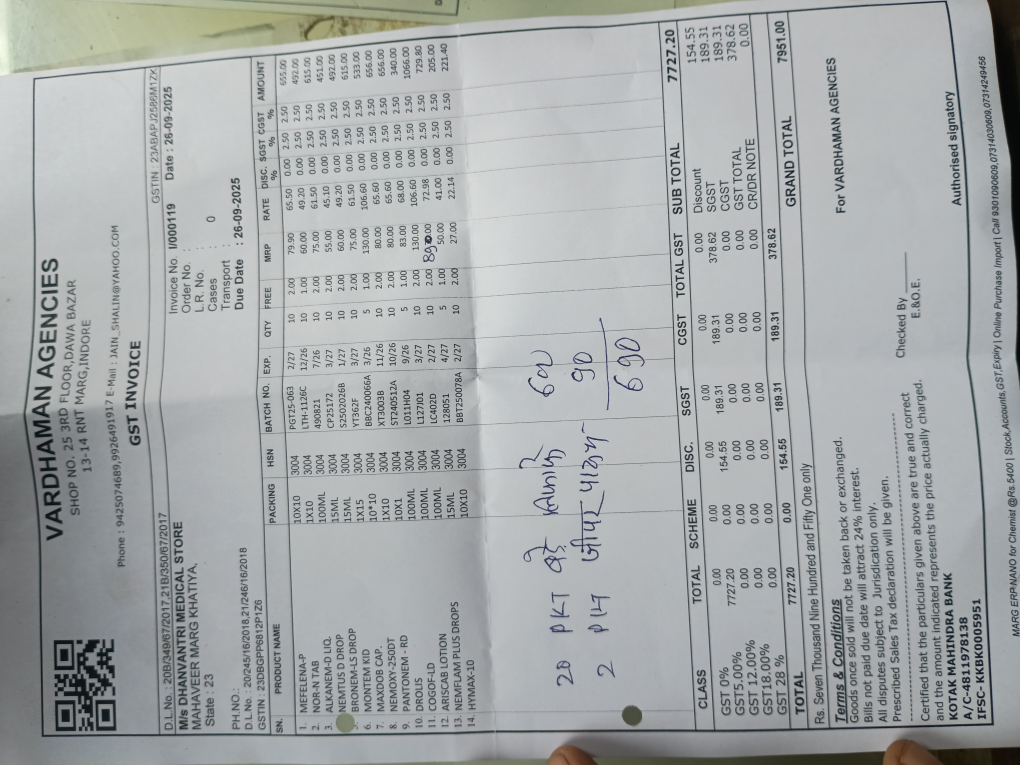 VARDHAMAN AGENCIES
SHOP NO. 25 3RD FLOOR,DAWA BAZAR
13-14 RNT MARG,INDORE
Phone : 9425074689,9926491917 E-Mail : JAIN_SHALIN@YAHOO.COM
GST INVOICE
D.L.No.: 20B/349/67/2017,21B/350/67/2017 GSTIN : 23ABAPJ2586M1ZK
M/s DHANVANTRI MEDICAL STORE
MAHAVEER MARG KHATIYA,
State : 23
PH.NO.:
D.L No.: 20/245/16/2018,21/246/16/2018
GSTIN : 23DBGPP6812P1Z6
Invoice No. I/000119 Date : 26-09-2025
Order No. :
L.R. No. :
Cases : 0
Transport :
Due Date : 26-09-2025
SN. PRODUCT NAME PACKING HSN BATCH NO. EXP. QTY FREE MRP RATE DISC. % SGST % CGST % AMOUNT
1. MEFELENA-P 10X10 3004 PGT25-063 2/27 10 2.00 79.90 65.50 0.00 2.50 2.50 655.00
2. NOR-N TAB 1X10 3004 LTH-1126C 12/26 10 1.00 60.00 49.20 0.00 2.50 2.50 492.00
3. ALKANEM-D LIQ. 100ML 3004 490821 7/26 10 2.00 75.00 61.50 0.00 2.50 2.50 615.00
4. NEMTUS D DROP 15ML 3004 CP25172 3/27 10 2.00 55.00 45.10 0.00 2.50 2.50 451.00
5. BRONEM-LS DROP 15ML 3004 S2502026B 1/27 10 2.00 60.00 49.20 0.00 2.50 2.50 492.00
6. MONTEM KID 1X15 3004 YT362F 3/27 10 2.00 75.00 61.50 0.00 2.50 2.50 615.00
7. MAXDOB CAP. 10*10 3004 BBC240066A 3/26 5 1.00 130.00 106.60 0.00 2.50 2.50 533.00
8. NEMOXY-250DT 1X10 3004 XT3003B 11/26 10 2.00 80.00 65.60 0.00 2.50 2.50 656.00
9. PANTONEM - RD 10X1 3004 ST240512A 10/26 10 2.00 80.00 65.60 0.00 2.50 2.50 656.00
10. DROLIS 3004 L011H04 9/26 5 1.00 83.00 68.00 0.00 2.50 2.50 340.00
11. COGOF-LD 100ML 3004 L127J01 3/27 10 2.00 130.00 106.60 0.00 2.50 2.50 1066.00
12. ARISCAB LOTION 100ML 3004 LC402D 2/27 10 2.00 72.98 0.00 2.50 2.50 729.80
13. NEMFLAM PLUS DROPS 15ML 3004 128051 4/27 5 1.00 50.00 41.00 0.00 2.50 2.50 205.00
14. HYMAX-10 10X10 3004 BBT250078A 2/27 10 2.00 27.00 22.14 0.00 2.50 2.50 221.40
20 PKT 600
2 PKT 90
690
CLASS TOTAL SCHEME DISC. SGST CGST TOTAL GST
GST 0% 0.00 0.00 0.00 0.00 0.00 0.00
GST5.00% 7727.20 0.00 154.55 189.31 189.31 378.62
GST 12.00% 0.00 0.00 0.00 0.00 0.00 0.00
GST18.00% 0.00 0.00 0.00 0.00 0.00 0.00
GST 28 % 0.00 0.00 0.00 0.00 0.00 0.00
TOTAL 7727.20 0.00 154.55 189.31 189.31 378.62
SUB TOTAL 7727.20
Discount 154.55
SGST 189.31
CGST 189.31
GST TOTAL 378.62
CR/DR NOTE 0.00
GRAND TOTAL 7951.00
Rs. Seven Thousand Nine Hundred and Fifty One only
Terms & Conditions
Goods once sold will not be taken back or exchanged.
Bills not paid due date will attract 24% interest.
All disputes subject to Jurisdication only.
Prescribed Sales Tax declaration will be given.
Certified that the particulars given above are true and correct
and the amount indicated represents the price actually charged.
KOTAK MAHINDRA BANK
A/C-4811978138
IFSC- KKBK0005951
Checked By
E.&O.E.
For VARDHAMAN AGENCIES
Authorised signatory
MARG ERP-NANO for Chemist @Rs.5400 | Stock,Accounts,GST,Expiry | Online Purchase Import | Call 9301090609,07314030609,07314249456